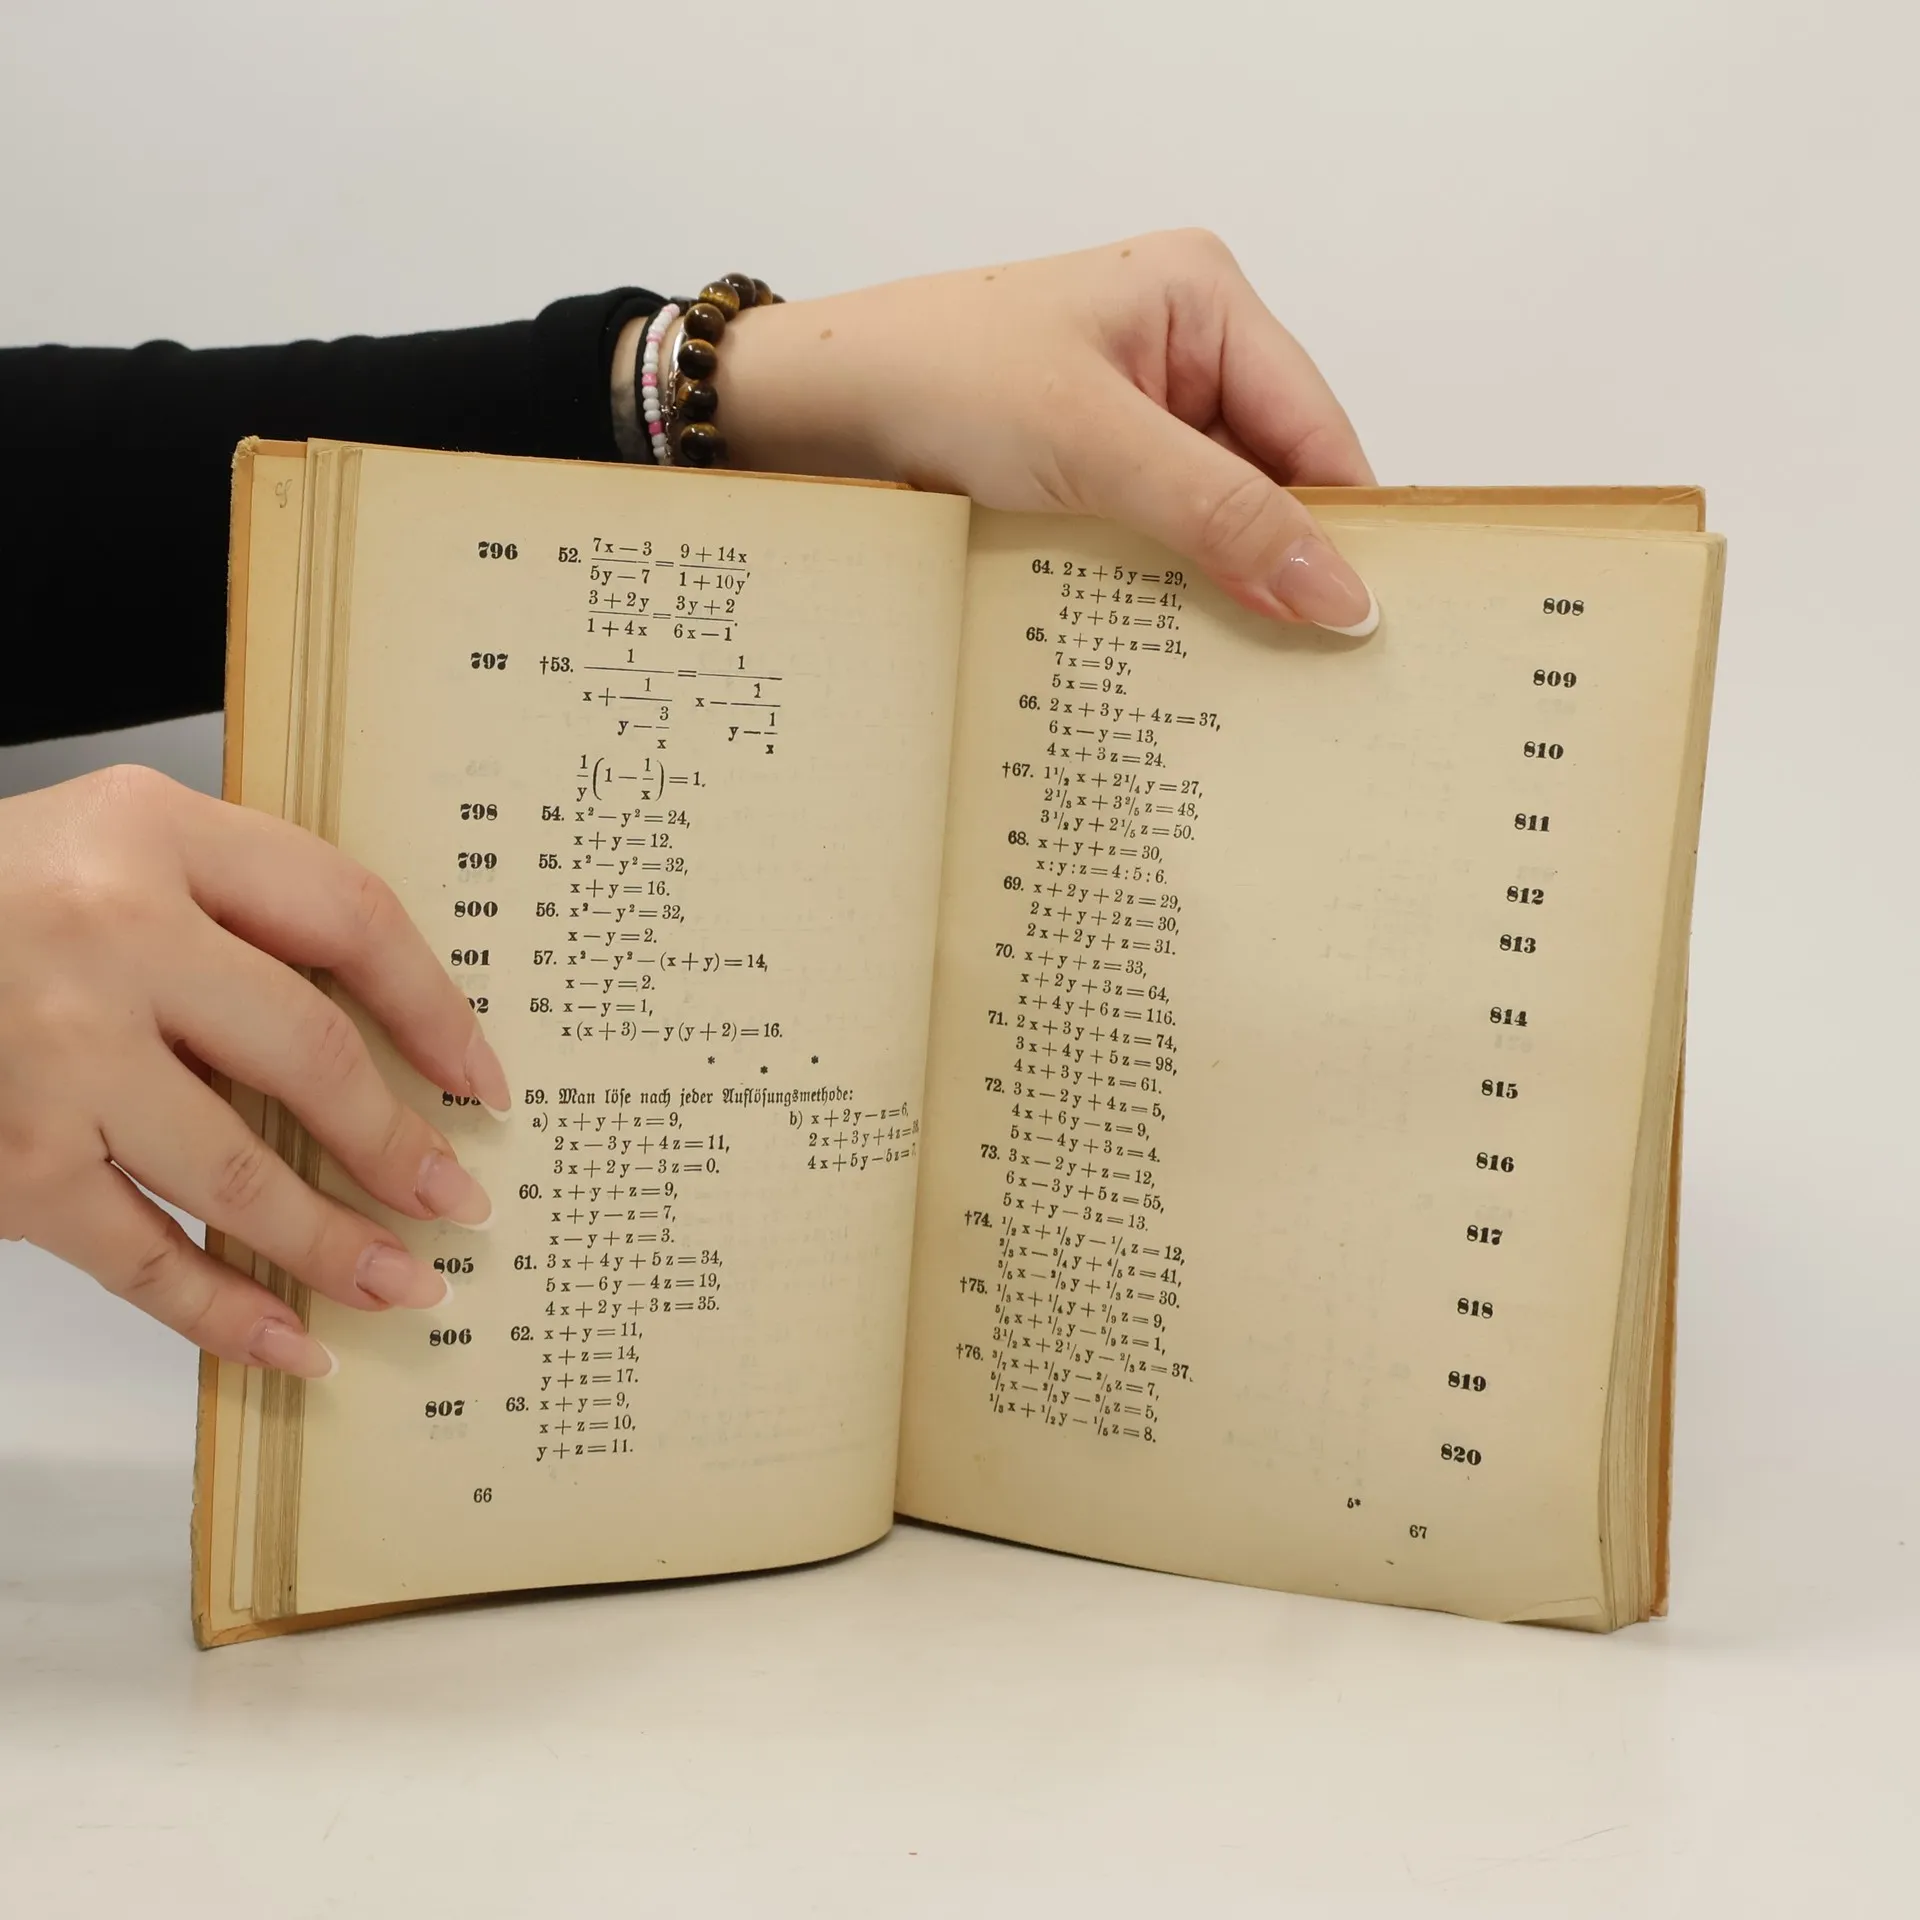 796 52. (7x — 3)/(5y — 7) = (9 + 14x)/(1 + 10y),
(3 + 2y)/(1 + 4x) = (3y + 2)/(6x — 1).
797 †53. 1/(x + 1/(y — 3/x)) = 1/(x — 1/(y — 1/x))
1/y (1 — 1/x) = 1.
798 54. x² — y² = 24,
x + y = 12.
799 55. x² — y² = 32,
x + y = 16.
800 56. x² — y² = 32,
x — y = 2.
801 57. x² — y² — (x + y) = 14,
x — y = 2.
58. x — y = 1,
x (x + 3) — y (y + 2) = 16.
* * *
59. Man löse nach jeder Auflösungsmethode:
a) x + y + z = 9, b) x + 2y — z = 6,
2x — 3y + 4z = 11, 2x + 3y + 4z =
3x + 2y — 3z = 0. 4x + 5y — 5z =
60. x + y + z = 9,
x + y — z = 7,
x — y + z = 3.
805 61. 3x + 4y + 5z = 34,
5x — 6y — 4z = 19,
4x + 2y + 3z = 35.
806 62. x + y = 11,
x + z = 14,
y + z = 17.
807 63. x + y = 9,
x + z = 10,
y + z = 11.
66
64. 2x + 5y = 29, 808
3x + 4z = 41,
4y + 5z = 37.
65. x + y + z = 21, 809
7x = 9y,
5x = 9z.
66. 2x + 3y + 4z = 37, 810
6x — y = 13,
4x + 3z = 24.
†67. 1 1/2 x + 2 1/4 y = 27, 811
2 1/3 x + 3 2/5 z = 48,
3 1/2 y + 2 1/5 z = 50.
68. x + y + z = 30, 812
x : y : z = 4 : 5 : 6.
69. x + 2y + 2z = 29, 813
2x + y + 2z = 30,
2x + 2y + z = 31.
70. x + y + z = 33, 814
x + 2y + 3z = 64,
x + 4y + 6z = 116.
71. 2x + 3y + 4z = 74, 815
3x + 4y + 5z = 98,
4x + 3y + z = 61.
72. 3x — 2y + 4z = 5, 816
4x + 6y — z = 9,
5x — 4y + 3z = 4.
73. 3x — 2y + z = 12, 817
6x — 3y + 5z = 55,
5x + y — 3z = 13.
†74. 1/2 x + 1/3 y — 1/4 z = 12, 818
2/3 x — 3/4 y + 4/5 z = 41,
3/5 x — 2/9 y + 1/3 z = 30.
†75. 1/3 x + 1/4 y + 2/9 z = 9, 819
5/6 x + 1/2 y — 5/9 z = 1,
3 1/2 x + 2 1/3 y — 2/3 z = 37.
†76. 3/7 x + 1/3 y — 2/5 z = 7, 820
5/7 x — 2/3 y — 3/5 z = 5,
1/3 x + 1/2 y — 1/5 z = 8.
5*
67